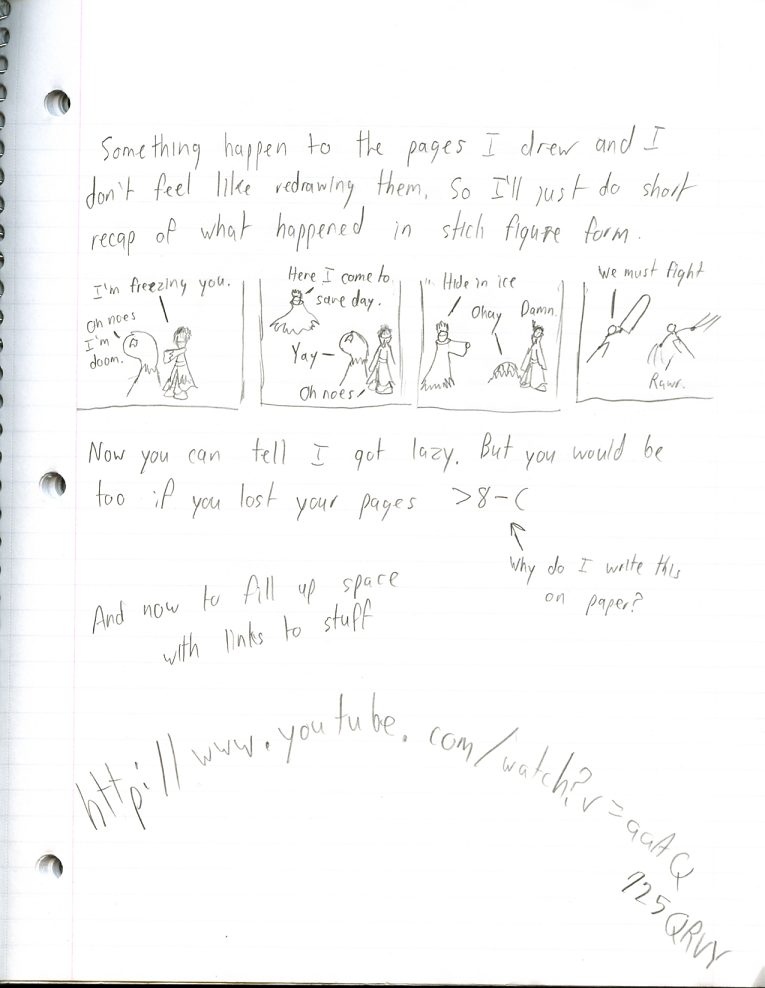 Something happen to the pages I drew and I
don't feel like redrawing them. So I'll just do short
recap of what happened in stich figure form.
I'm freezing you.
Oh noes
I'm
doom.
Here I come to
save day.
Yay
Oh noes
Hide in ice
Ohay
Damn.
We must fight
Rawr.
Now you can tell I got lazy. But you would be
too if you lost your pages >8-(
Why do I write this
on paper?
And now to fill up space
with links to stuff
http://www.youtube.com/watch?v=aaAQ
725QRVY